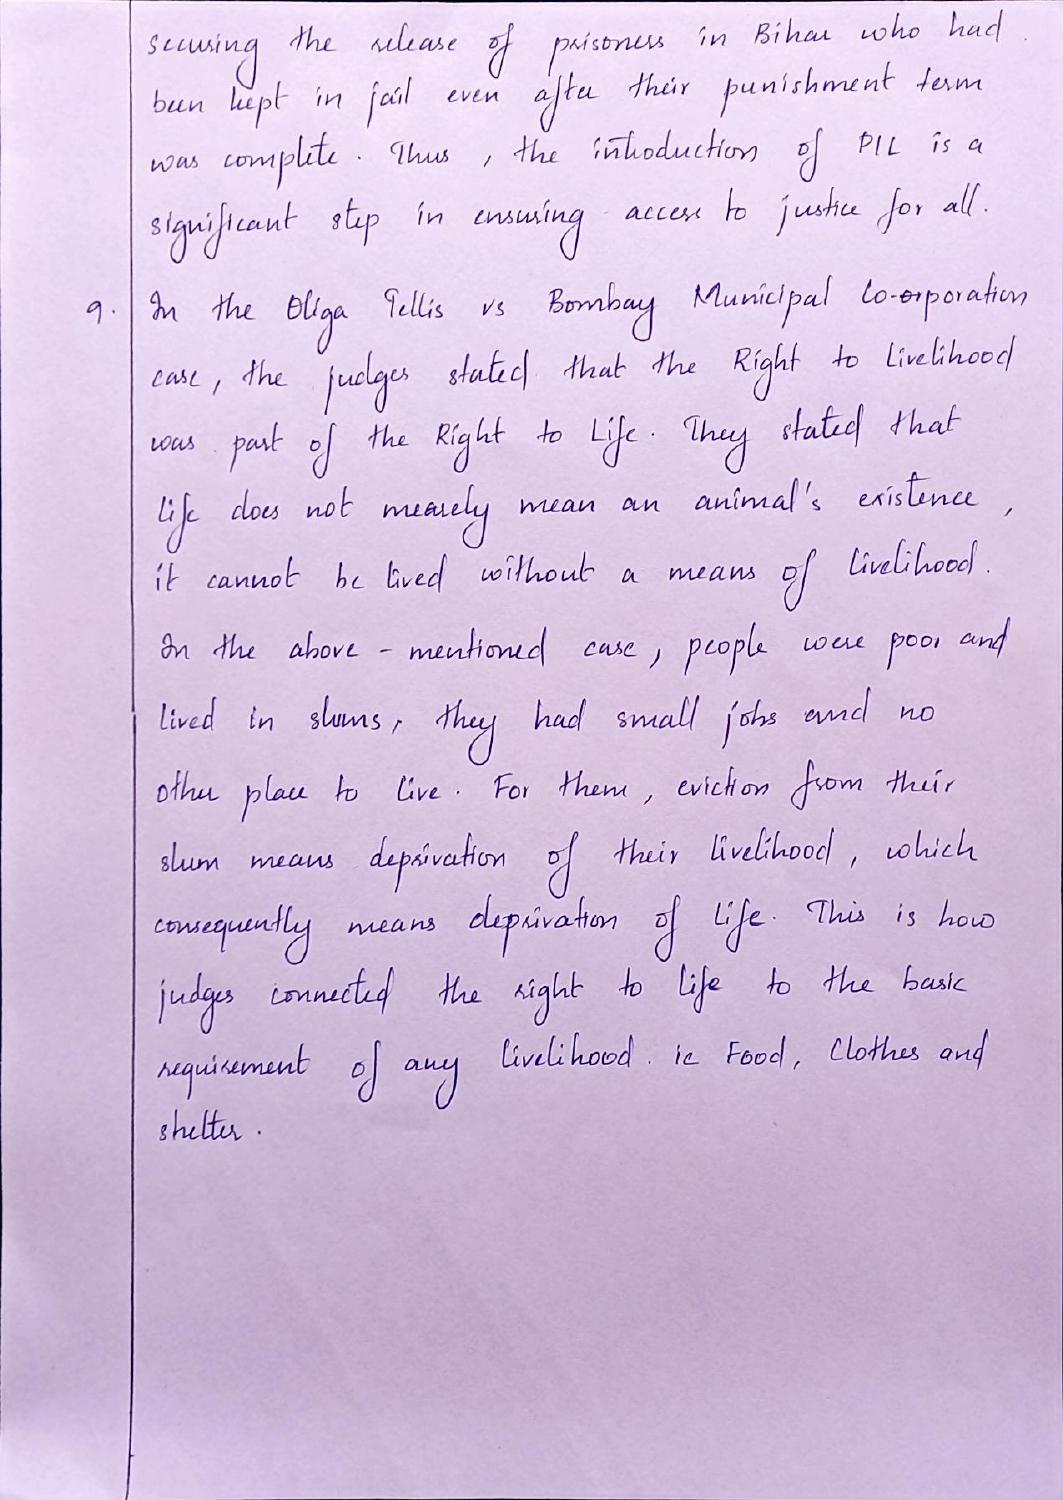 securing the release of prisoners in Bihar who had
been kept in jail even after their punishment term
was complete. Thus, the introduction of PIL is a
significant step in ensuring access to justice for all.
9. In the Oliga Tellis vs Bombay Municipal Co-orporation
case, the judges stated that the Right to Livelihood
was part of the Right to Life. They stated that
life does not mearely mean an animal's existence,
it cannot be lived without a means of livelihood.
In the above-mentioned case, people were poor and
lived in slums, they had small jobs and no
other place to live. For them, eviction from their
slum means deprivation of their livelihood, which
consequently means deprivation of life. This is how
judges connected the right to life to the basic
requirement of any livelihood. ie Food, Clothes and
shelter.